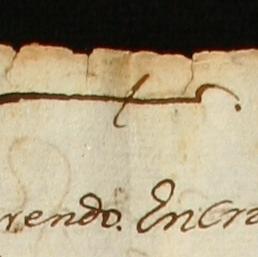 rendo. Encra